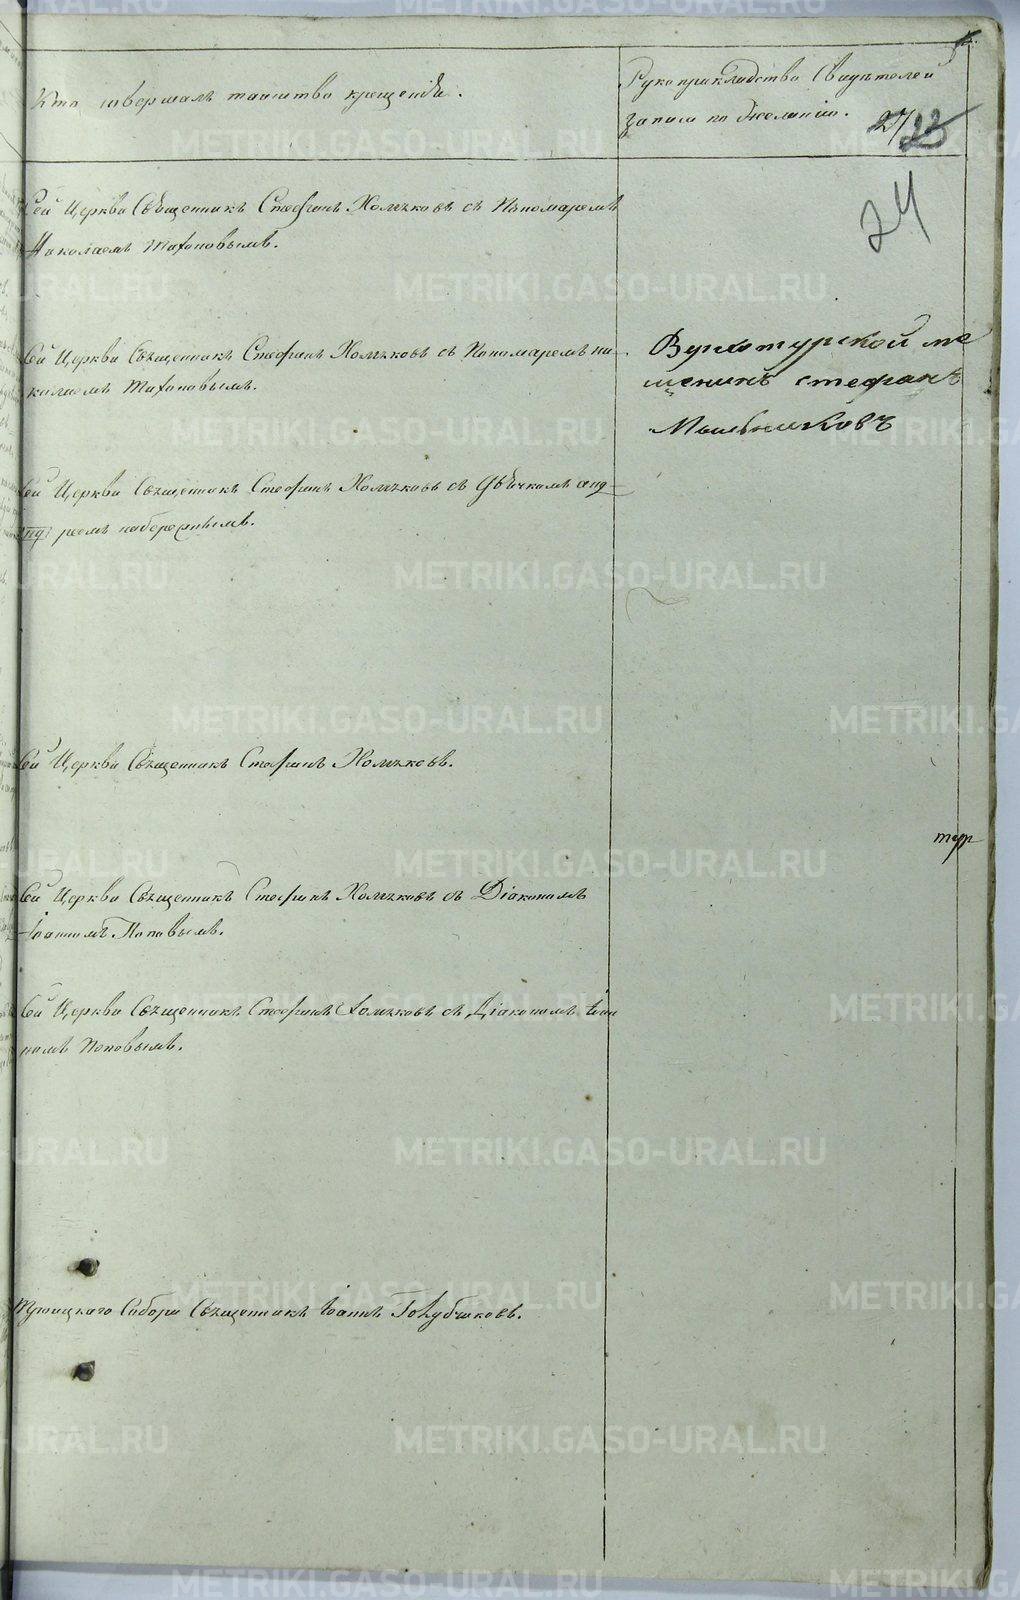 Кто совершалъ таинство крещенія.
Рукоприкладство Свидѣтелей
записи по желанію.
27
23
24
Сей Церкви Священникъ Стефанъ Хомяковъ съ Пономаремъ
Николаемъ Тихоновымъ.
Сей Церкви Священникъ Стефанъ Хомяковъ съ Пономаремъ Ни-
колаемъ Тихоновымъ.
Верхотурской ме
щенинъ стефанъ
Мыльниковъ
Сей Церкви Священникъ Стефанъ Хомяковъ съ Дьячкомъ анд-
реемъ набережнымъ.
Сей Церкви Священникъ Стефанъ Хомяковъ.
Сей Церкви Священникъ Стефанъ Хомяковъ съ Діакономъ
Іоанномъ Поповымъ.
Сей Церкви Священникъ Стефанъ Хомяковъ съ Діакономъ Іоан
номъ Поповымъ.
Троицкаго Собора Священникъ Іоаннъ Голубчиковъ.
METRIKI.GASO-URAL.RU